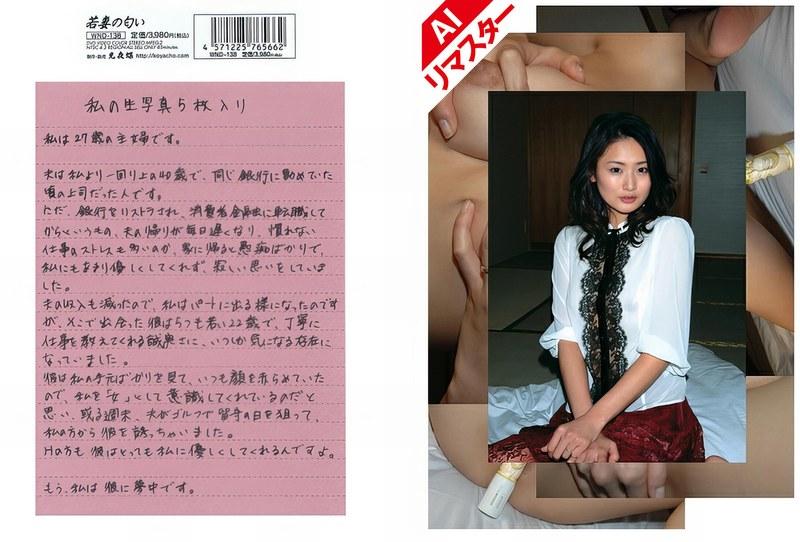 若妻の匂い
WND-138 定価/3,980円(税込)
DVD VIDEO COLOR STEREO MPEG2
http://koyacho.com
4 571225 765662
WND-138 定価/3,980円(税込)
AI
リマスター
私の生写真5枚入り
私は27歳の主婦です。
夫は私より一回り上の40歳で、同じ銀行に勤めていた
頃の上司だった人です。
ただ、銀行をリストラされ、消費者金融に転職して
からというもの、夫の帰りが毎日遅くなり、慣れない
仕事のストレスも多いのか、家に帰ると愚痴ばかりで、
私にもあまり優しくしてくれず、寂しい思いをしていま
した。
夫の収入も減ったので、私はパートに出る様になったのです
が、そこで出会った彼は5つも若い22歳で、丁寧に
仕事を教えてくれる誠実さに、いつしか気になる存在に
なっていました。
彼は私の手元ばかりを見て、いつも顔を赤らめていた
ので、私を「女」として意識してくれているのだと
思い、或る週末、夫がゴルフで留守の日を狙って、
私の方から彼を誘っちゃいました。
Hの方も彼はとっても私に優しくしてくれるんですよ。
もう、私は彼に夢中です。